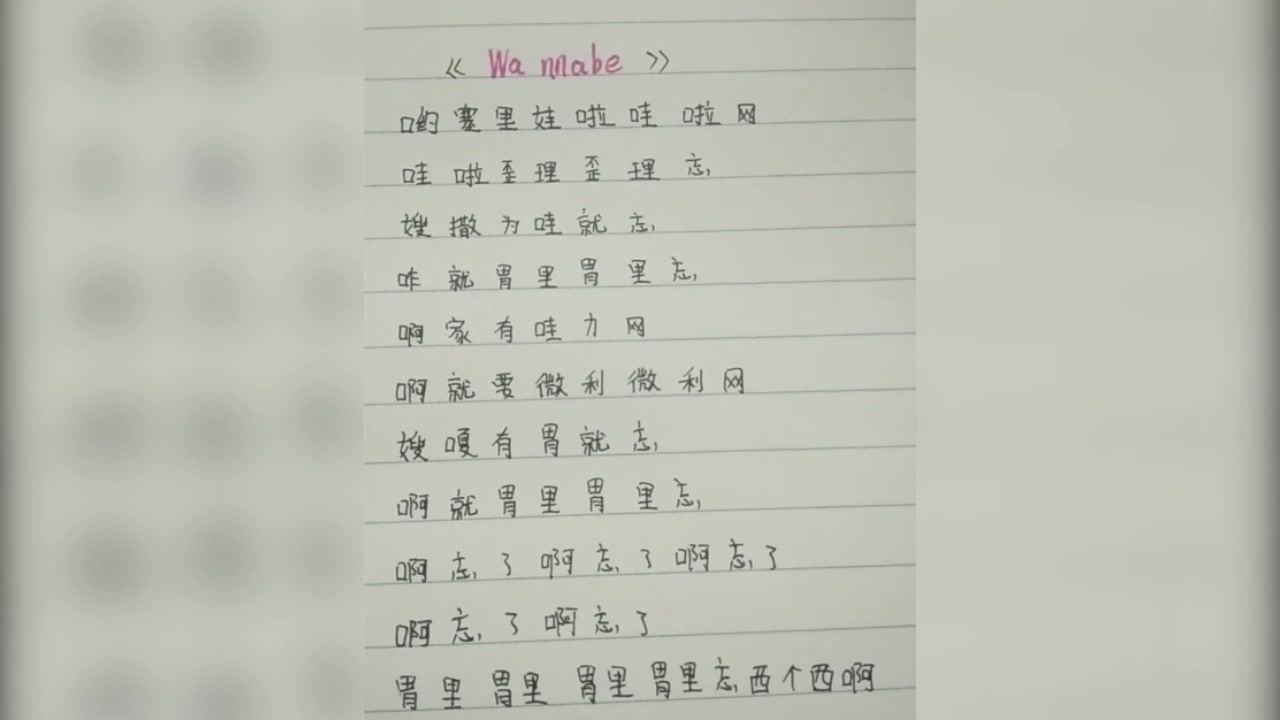 《 Wannabe 》
哟塞里娃啦哇啦网
哇啦歪理歪理忘
嫂撒为哇就忘
咋就胃里胃里忘
啊家有哇力网
啊就要微利微利网
嫂嘎有胃就忘
啊就胃里胃里忘
啊忘了啊忘了啊忘了
啊忘了啊忘了
胃里胃里胃里胃里忘西个西啊